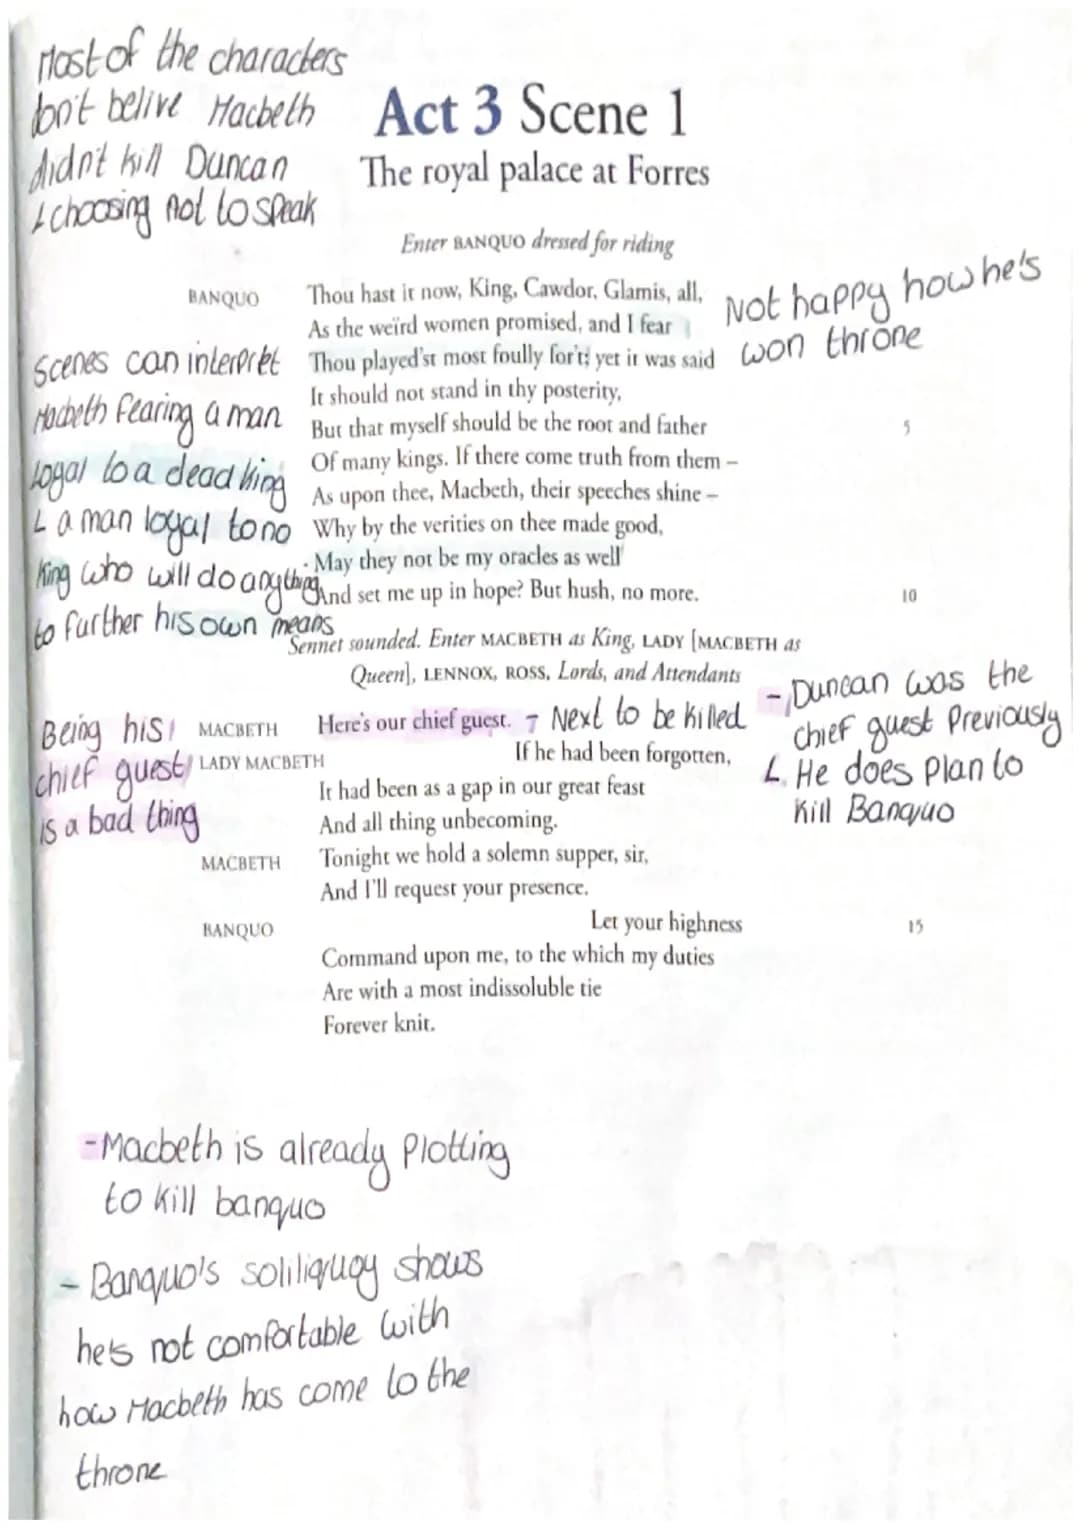 Most of the characters
don't belive Macbeth
didn't kill Duncan
↳ choosing not to speak
Act 3 Scene 1
The royal palace at Forres
Enter BANQUO dressed for riding
BANQUO Thou hast it now, King, Cawdor, Glamis, all,
As the weïrd women promised, and I fear
Thou played'st most foully for't; yet it was said
It should not stand in thy posterity,
But that myself should be the root and father 5
Of many kings. If there come truth from them –
As upon thee, Macbeth, their speeches shine –
Why by the verities on thee made good,
May they not be my oracles as well
And set me up in hope? But hush, no more. 10
Not happy how he's
won throne
Scenes can interpret
Macbeth fearing a man
loyal to a dead king
↳ a man loyal to no
king who will do anything
to further his own means
Sennet sounded. Enter MACBETH as King, LADY [MACBETH as
Queen], LENNOX, ROSS, Lords, and Attendants
MACBETH Here's our chief guest. → Next to be killed
LADY MACBETH If he had been forgotten,
It had been as a gap in our great feast
And all thing unbecoming.
MACBETH Tonight we hold a solemn supper, sir,
And I'll request your presence.
BANQUO Let your highness 15
Command upon me, to the which my duties
Are with a most indissoluble tie
Forever knit.
Being his
chief guest
is a bad thing
- Duncan was the
chief guest Previously
↳ He does Plan to
Kill Banquo
- Macbeth is already Plotting
to kill banquo
- Banquo's soliliquoy shows
he's not comfortable with
how Macbeth has come to the
throne